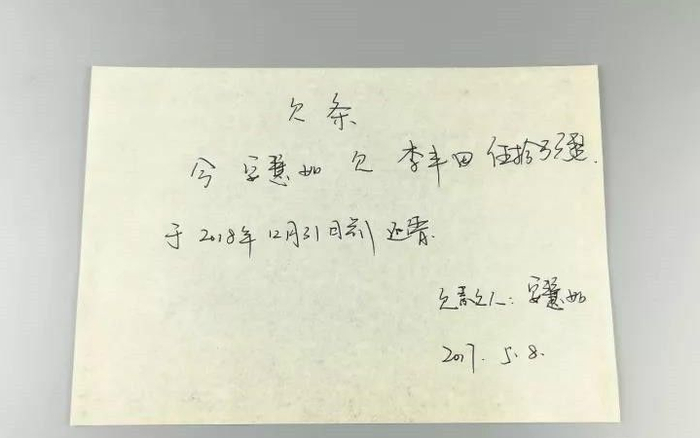 欠条
今安慧如欠李丰田伍拾万整.
于2018年12月31日前还清.
欠款人:安慧如
2017.5.8.